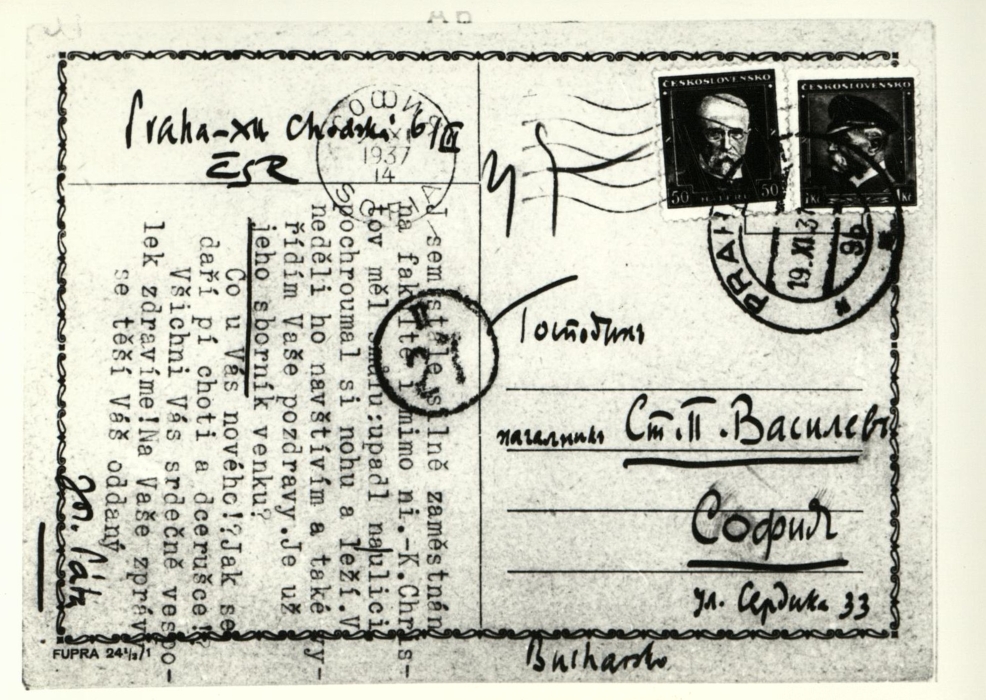 Praha-XII Chodská 6/III
ČSR
СОФИЯ
1937
14
ČESKOSLOVENSKO
50
50
ČESKOSLOVENSKO
1Kč
1Kč
PRAHA
19.XI.37
9b
Господинъ
началникъ Ст.П.Василевъ
София
ул. Сердика 33
Bulharsko
J sem stále silně zaměstnán
na fakultě i mimo ni.-K.Chris-
tov měl smůlu:upadl na ulici
pochroumal si nohu a leží.V
neděli ho navštívím a také vy-
řídím Vaše pozdravy.Je už
jeho sborník venku?
Co u Vás nového!?Jak se
daří pí choti a dcerušce?
Všichni Vás srdečně vespo-
lek zdravíme!Na Vaše zpráv
se těší Váš oddaný
Jos. Páta
FUPRA 24½/1